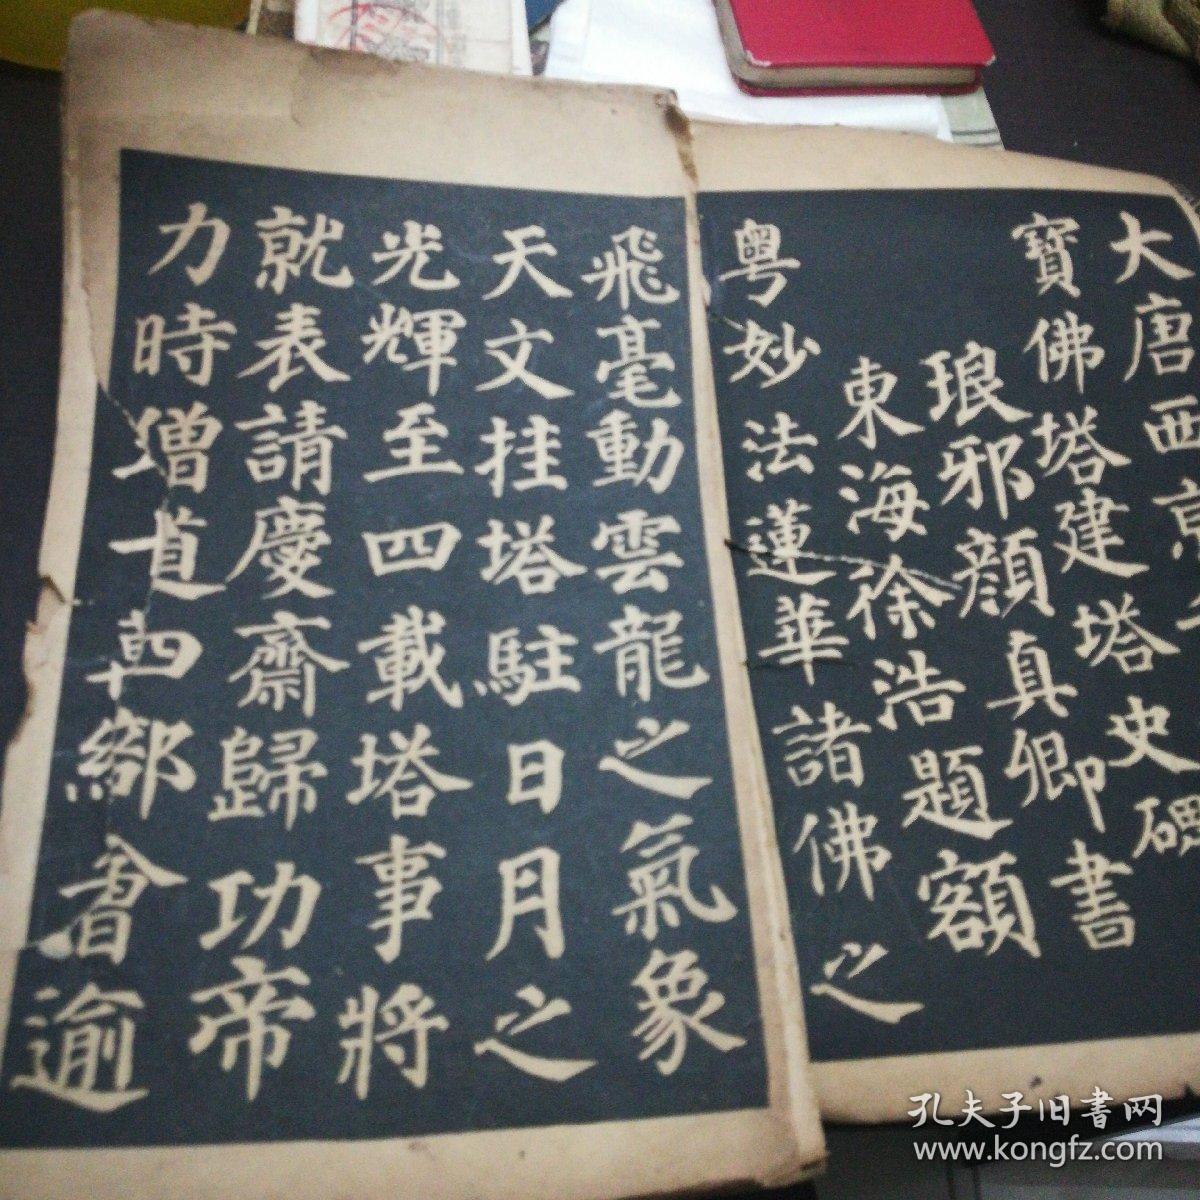 大唐西京千
寶佛塔建塔史碑
琅邪顔真卿書
東海徐浩題額
粤妙法蓮華諸佛之
飛毫動雲龍之氣象
天文挂塔駐日月之
光輝至四載塔事將
就表請慶齋歸功帝
力時僧道四會逾
孔夫子旧書网
www.kongfz.com